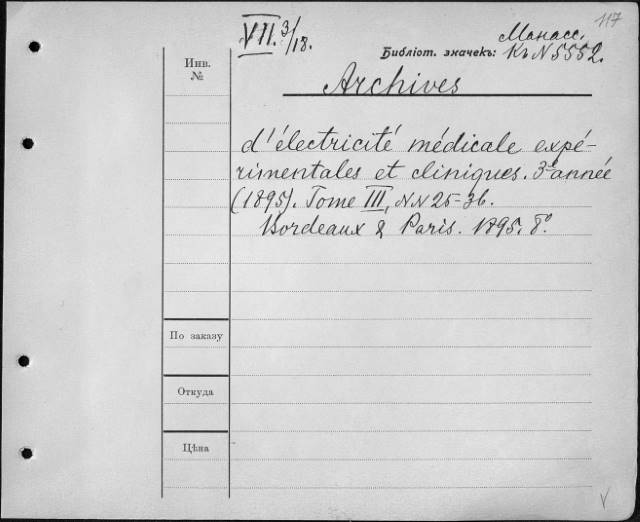 117
VII. 3/18.
Манасс.
Библіот. значекъ: Къ N 5552.
Инв.
№
Archives
d'électricité médicale expé-
rimentales et cliniques. 3e année
(1895). Tome III, NN 25-36.
Bordeaux & Paris. 1895. 8°.
По заказу
Откуда
Цѣна
V